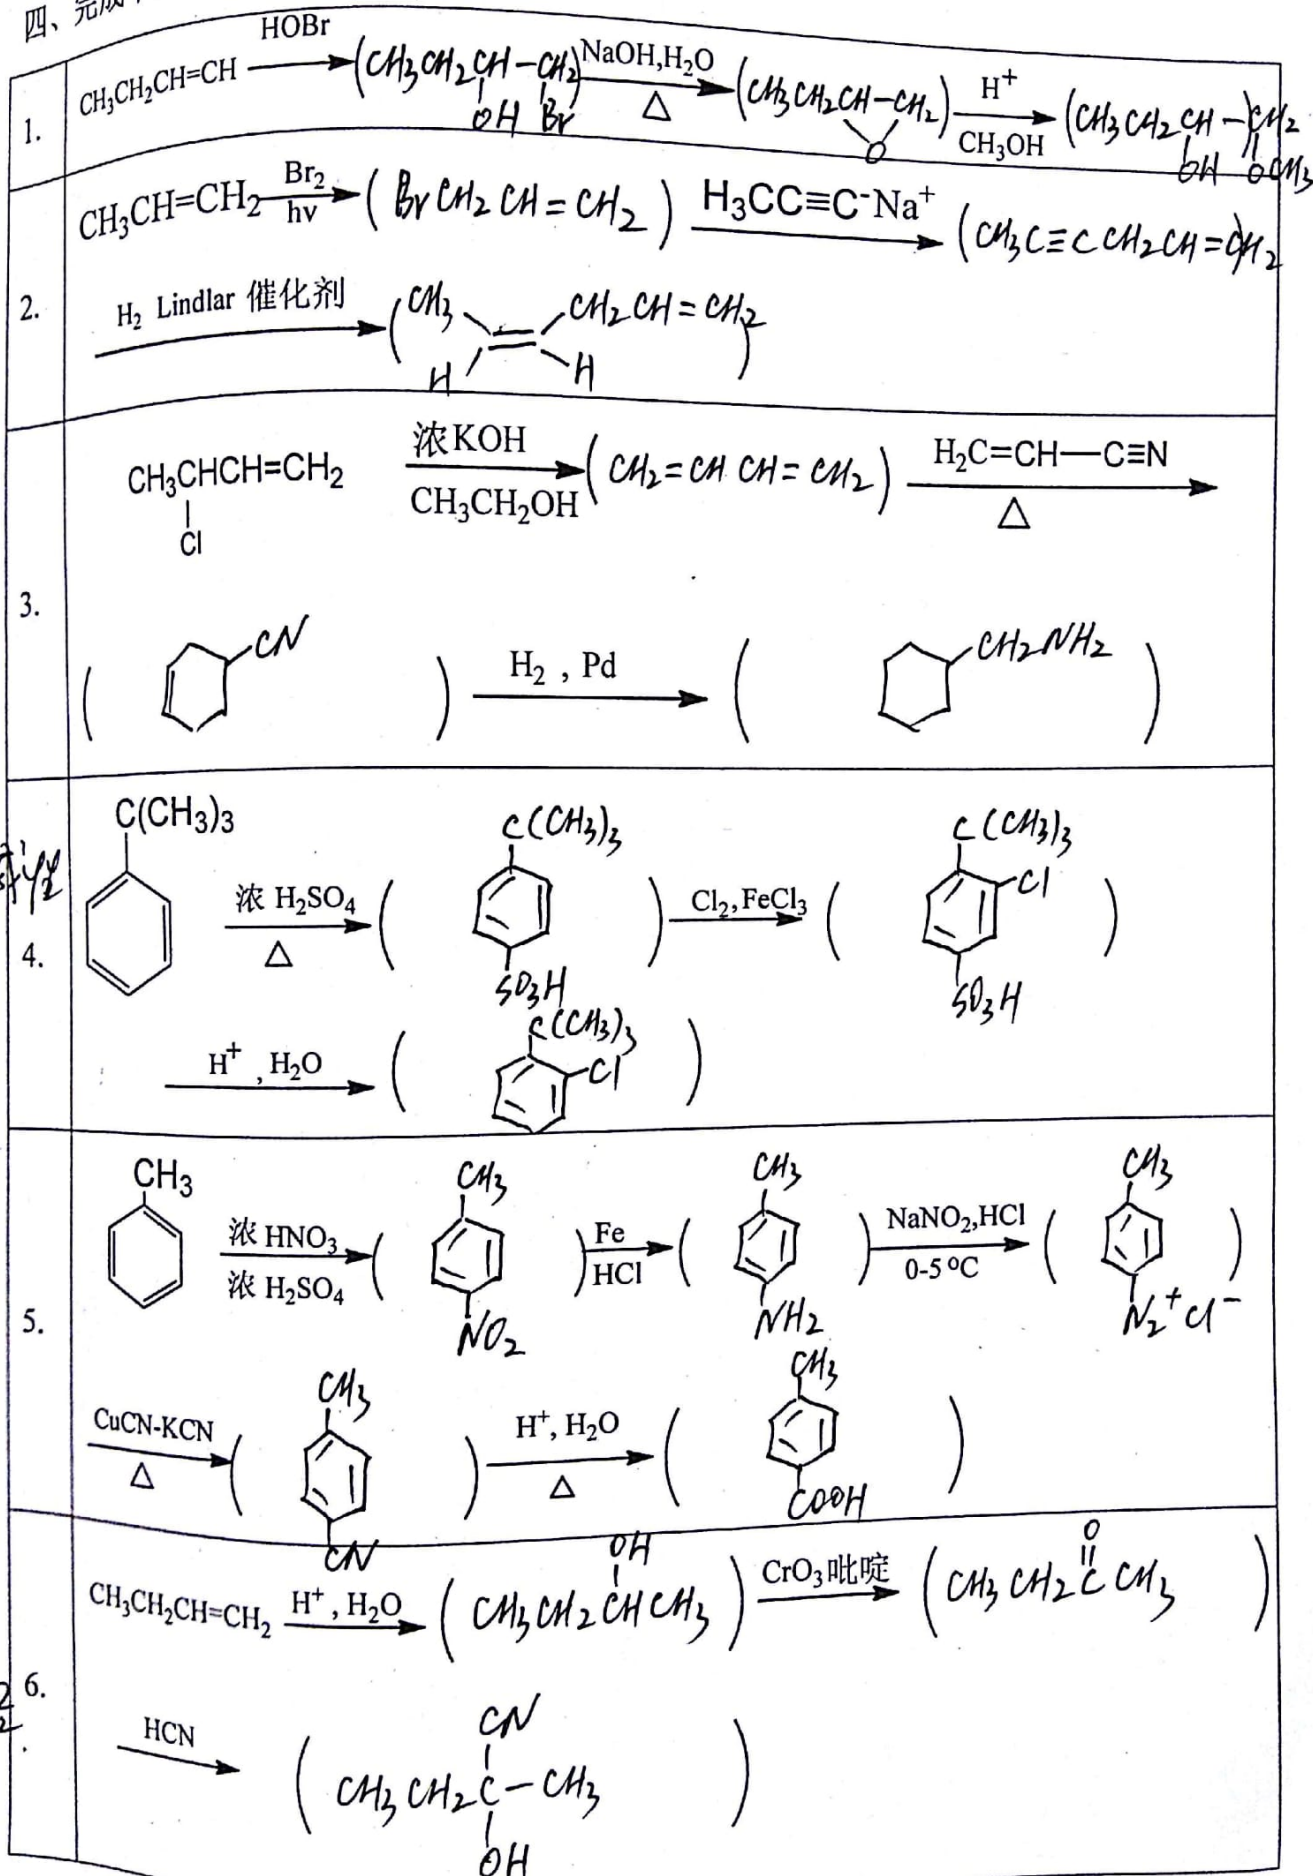 四、完成
1. CH₃CH₂CH=CH HOBr (CH₃CH₂CH-CH₂) NaOH,H₂O △ (CH₃CH₂CH-CH₂) H⁺ CH₃OH (CH₃CH₂CH-CH₂)
OH Br O OH OCH₃
2. CH₃CH=CH₂ Br₂ hν (BrCH₂CH=CH₂) H₃CC≡C⁻Na⁺ (CH₃C≡CCH₂CH=CH₂)
H₂ Lindlar 催化剂 (CH₃ CH₂CH=CH₂)
H H
3. CH₃CHCH=CH₂ 浓KOH CH₃CH₂OH (CH₂=CHCH=CH₂) H₂C=CH—C≡N △
Cl
( CN ) H₂ , Pd ( CH₂NH₂ )
4. C(CH₃)₃ 浓 H₂SO₄ △ ( C(CH₃)₃ SO₃H ) Cl₂,FeCl₃ ( C(CH₃)₃ Cl SO₃H )
H⁺ , H₂O ( C(CH₃)₃ Cl )
5. CH₃ 浓 HNO₃ 浓 H₂SO₄ ( CH₃ NO₂ ) Fe HCl ( CH₃ NH₂ ) NaNO₂,HCl 0-5 ºC ( CH₃ N₂⁺Cl⁻ )
CuCN-KCN △ ( CH₃ CN ) H⁺, H₂O △ ( CH₃ COOH )
6. CH₃CH₂CH=CH₂ H⁺ , H₂O ( OH CH₃CH₂CHCH₃ ) CrO₃吡啶 ( O CH₃CH₂CCH₃ )
HCN ( CN CH₃CH₂C-CH₃ OH )